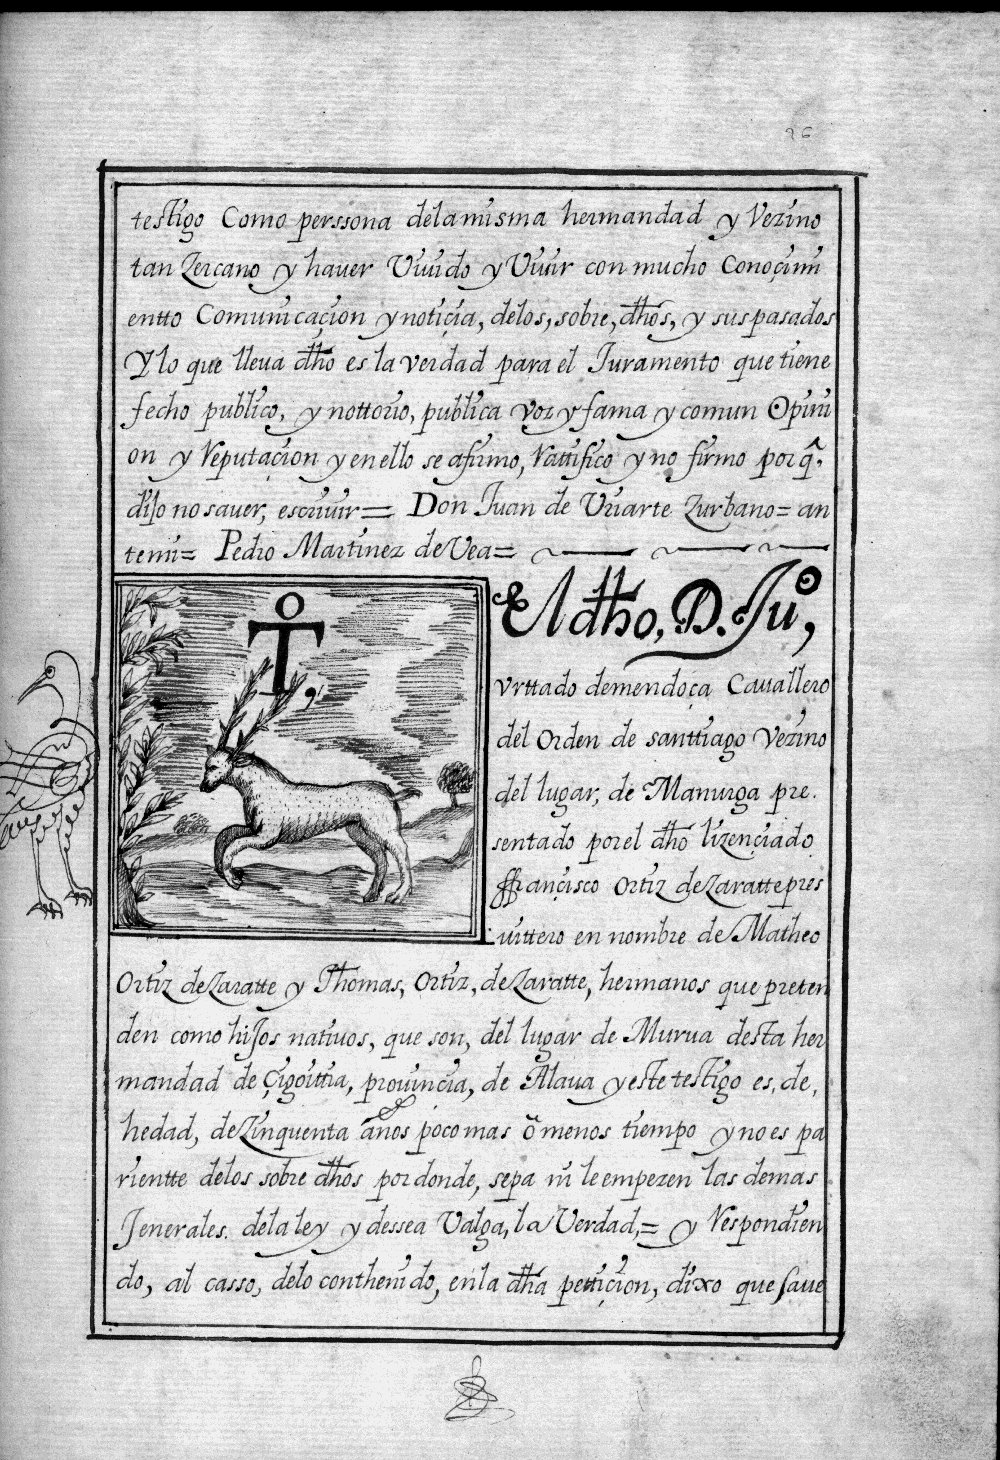 26
testigo Como perssona delamisma hermandad y Vezino
tan Zercano y haver Uiuido y Uiuir con mucho Conoçimi
entto Comunicaçion y notiçia, delos, sobre, dhos, y sus pasados
Y lo que lleua dho es la verdad para el Juramento que tiene
fecho publico, y nottorio, publica voz y fama y comun Opini
on y Reputaçion y en ello se afirmo, Rattifico y no firmo por q̃.
dijo no saver, escriuir= Don Juan de Uriarte Zurbano= an
temi= Pedro Martinez de Vea=
T,
El dho, D. Juº,
Vrttado demendoça Cauallero
del Orden de santtiago Vezino
del lugar, de Manurga pre.
sentado por el dho lizençiado
ffrançisco Ortiz de Zaratte pres
uittero en nombre de Matheo
Ortiz de Zaratte y Thomas, Ortiz, de Zaratte, hermanos que preten
den como hijos natiuos, que son, del lugar de Murua desta her
mandad de Çigoittia, prouincia, de Alaua y este testigo es, de,
hedad, de Zinquenta años poco mas ŏ menos tiempo y no es pa
rientte delos sobre dhos por donde, sepa ni le empezen las demas
Jenerales. dela ley y dessea Valga, la Verdad,= y Respondien
do, al casso, delo conthenido, en la dha pettiçion, dixo que saue